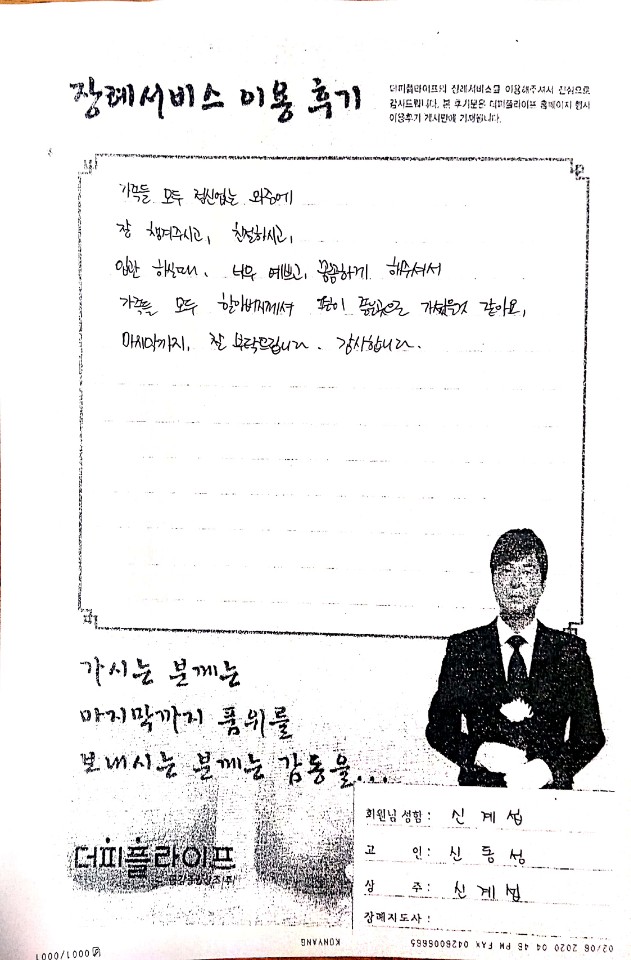 장례서비스 이용 후기
더피플라이프의 장례서비스를 이용해주셔서 진심으로
감사드립니다. 본 후기분은 더피플라이프 홈페이지 행사
이용후기 게시판에 기재됩니다.
가족들 모두 정신없는 와중에
잘 챙겨주시고, 친절하시고,
입관 하실때, 너무 예쁘고, 꼼꼼하게 해주셔서
가족들 모두 할아버지께서 편히 좋은곳으로 가셨을것 같아요,
마지막까지, 잘 부탁드립니다. 감사합니다.
가시는 분께는
마지막까지 품위를
보내시는 분께는 감동을...
더피플라이프
회원님 성함 : 신계섭
고 인 : 신동성
상 주 : 신계섭
장례지도사 :
02/06 2020 04:46 PM FAX 0426006665 KONYANG 0001/0001